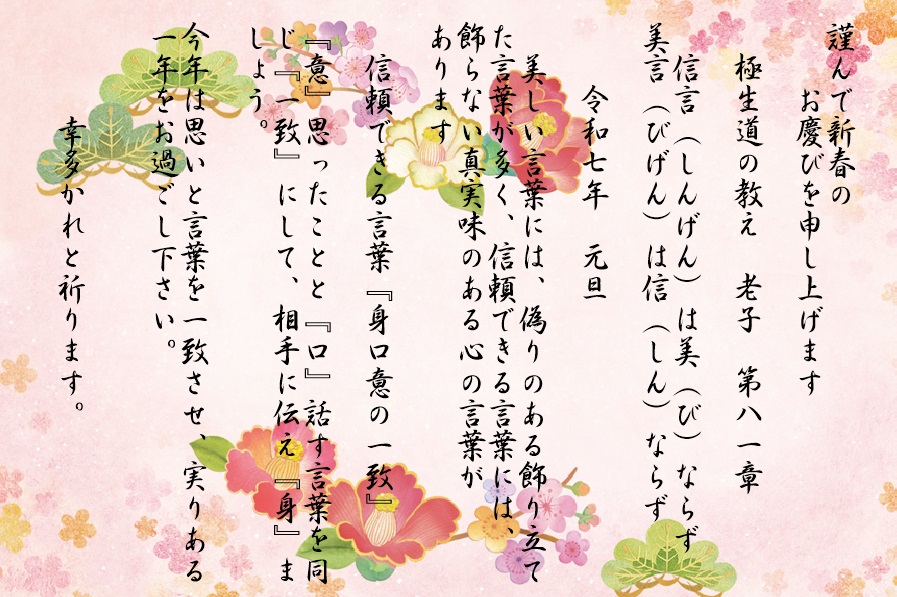 謹んで新春の
お慶びを申し上げます
極生道の教え　老子　第八一章
信言（しんげん）は美（び）ならず
美言（びげん）は信（しん）ならず
令和七年　元旦
美しい言葉には、偽りのある飾り立て
た言葉が多く、信頼できる言葉には、
飾らない真実味のある心の言葉が
あります
信頼できる言葉『身口意の一致』
『意』思ったことと『口』話す言葉を同
じ『一致』にして、相手に伝え『身』ま
しょう。
今年は思いと言葉を一致させ、実りある
一年をお過ごし下さい。
幸多かれと祈ります。